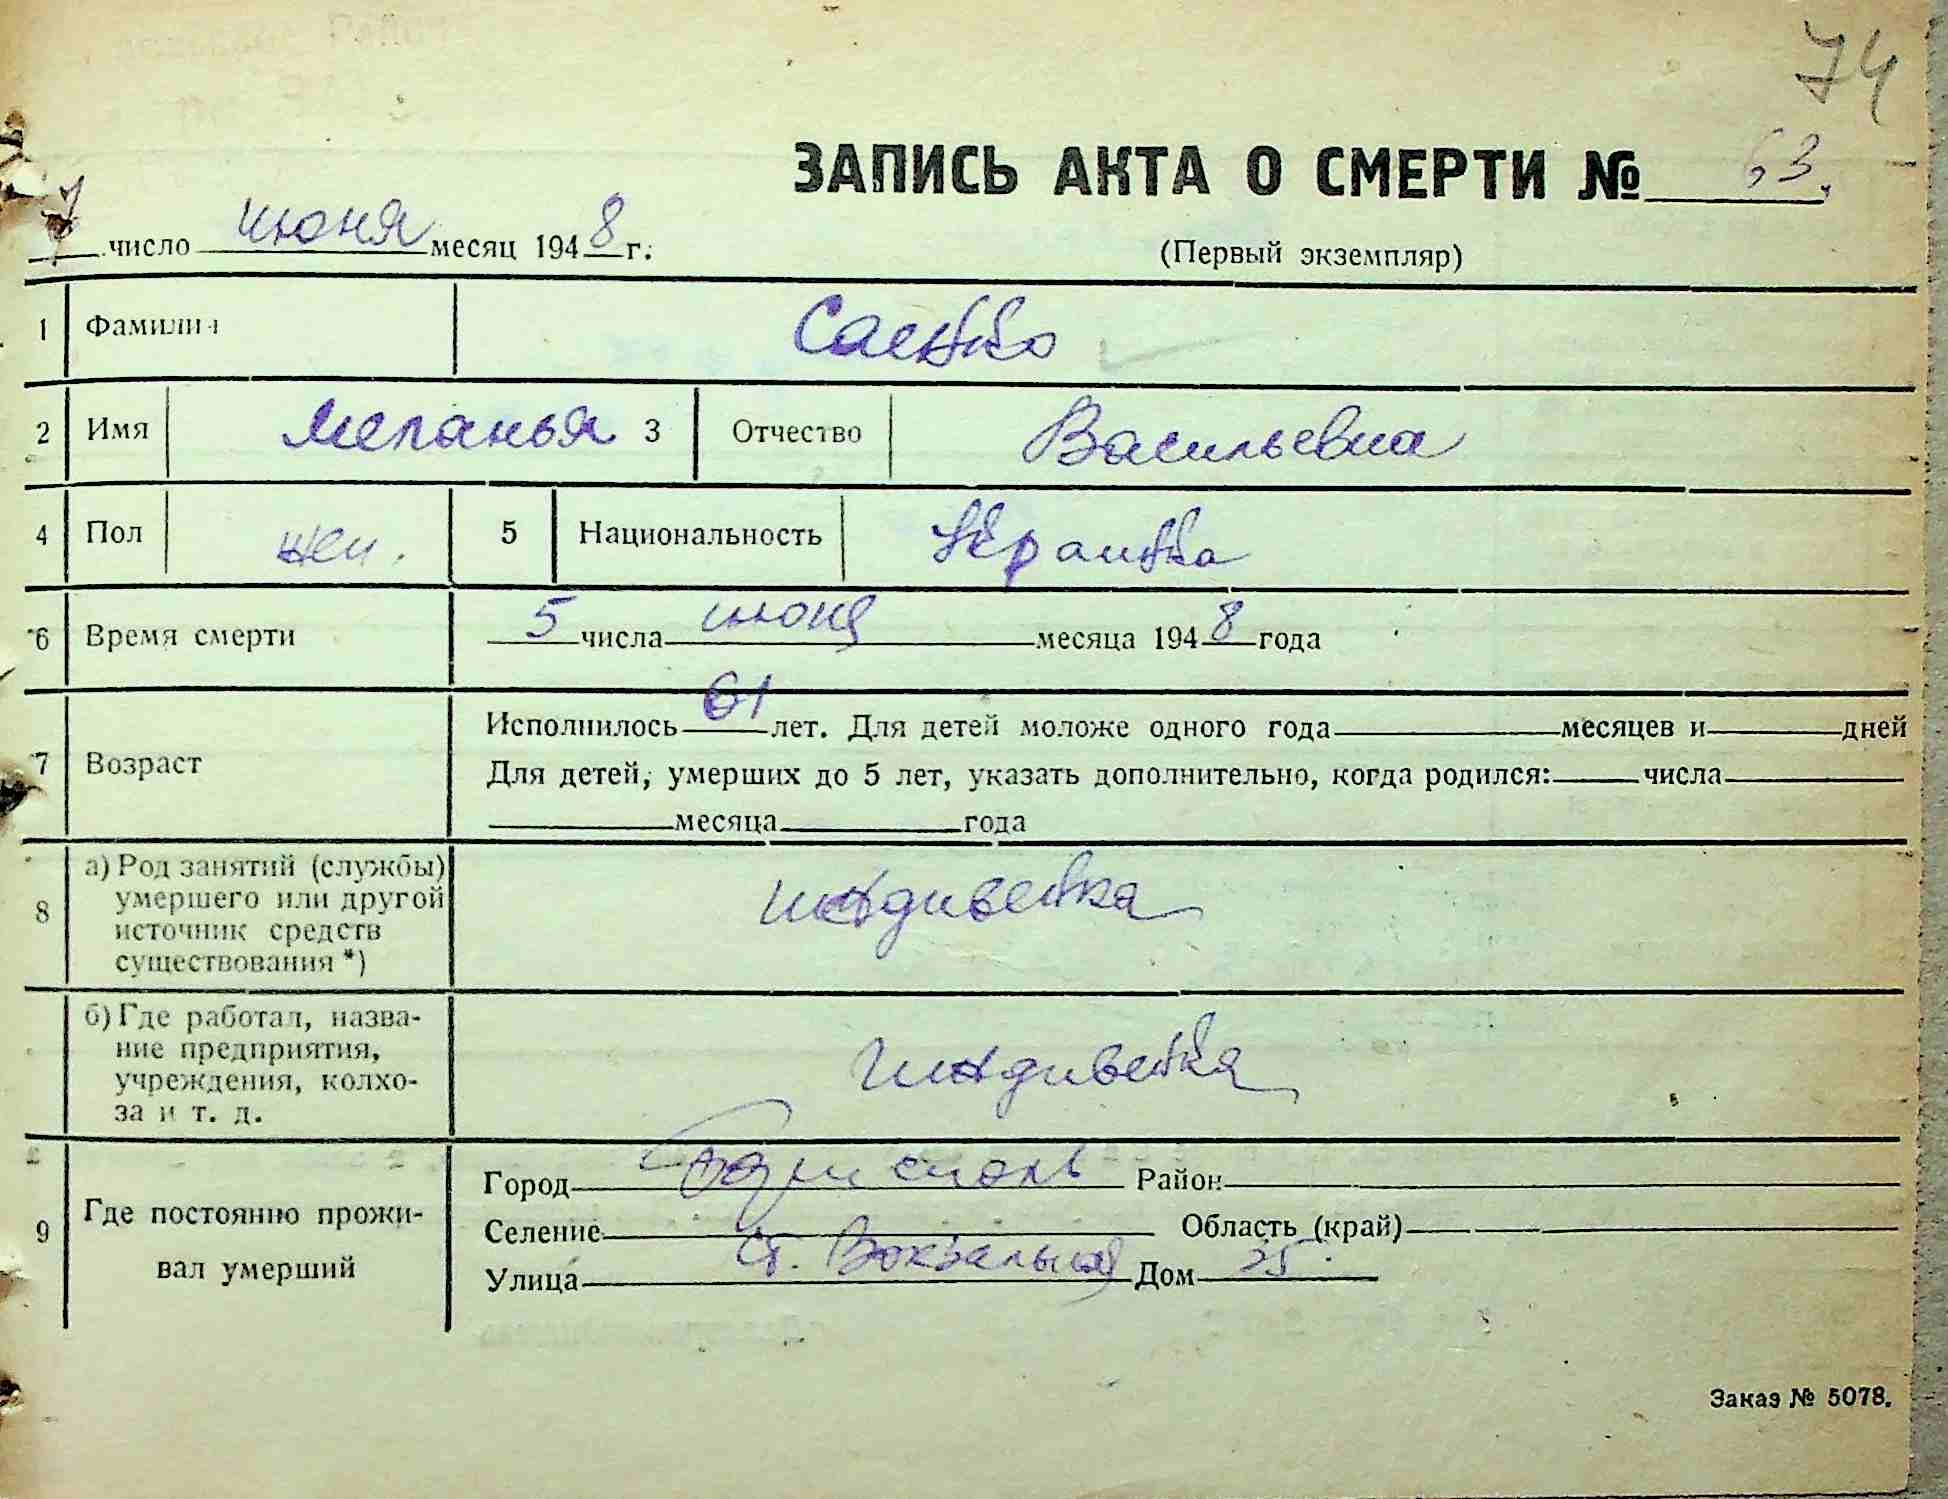 74
ЗАПИСЬ АКТА О СМЕРТИ № 63.
7 число июня месяц 1948 г.
(Первый экземпляр)
1 Фамилия Саенко
2 Имя Меланья 3 Отчество Васильевна
4 Пол жен. 5 Национальность Украинка
6 Время смерти 5 числа июня месяца 1948 года
7 Возраст
Исполнилось 61 лет. Для детей моложе одного года месяцев и дней
Для детей, умерших до 5 лет, указать дополнительно, когда родился: числа
месяца года
8 а) Род занятий (службы)
умершего или другой
источник средств
существования *)
иждивенка
б) Где работал, назва-
ние предприятия,
учреждения, колхо-
за и т. д.
Иждивенка
9 Где постоянно прожи-
вал умерший
Город Борисполь Район
Селение Область (край)
Улица ст. Вокзальная Дом 25
Заказ № 5078.